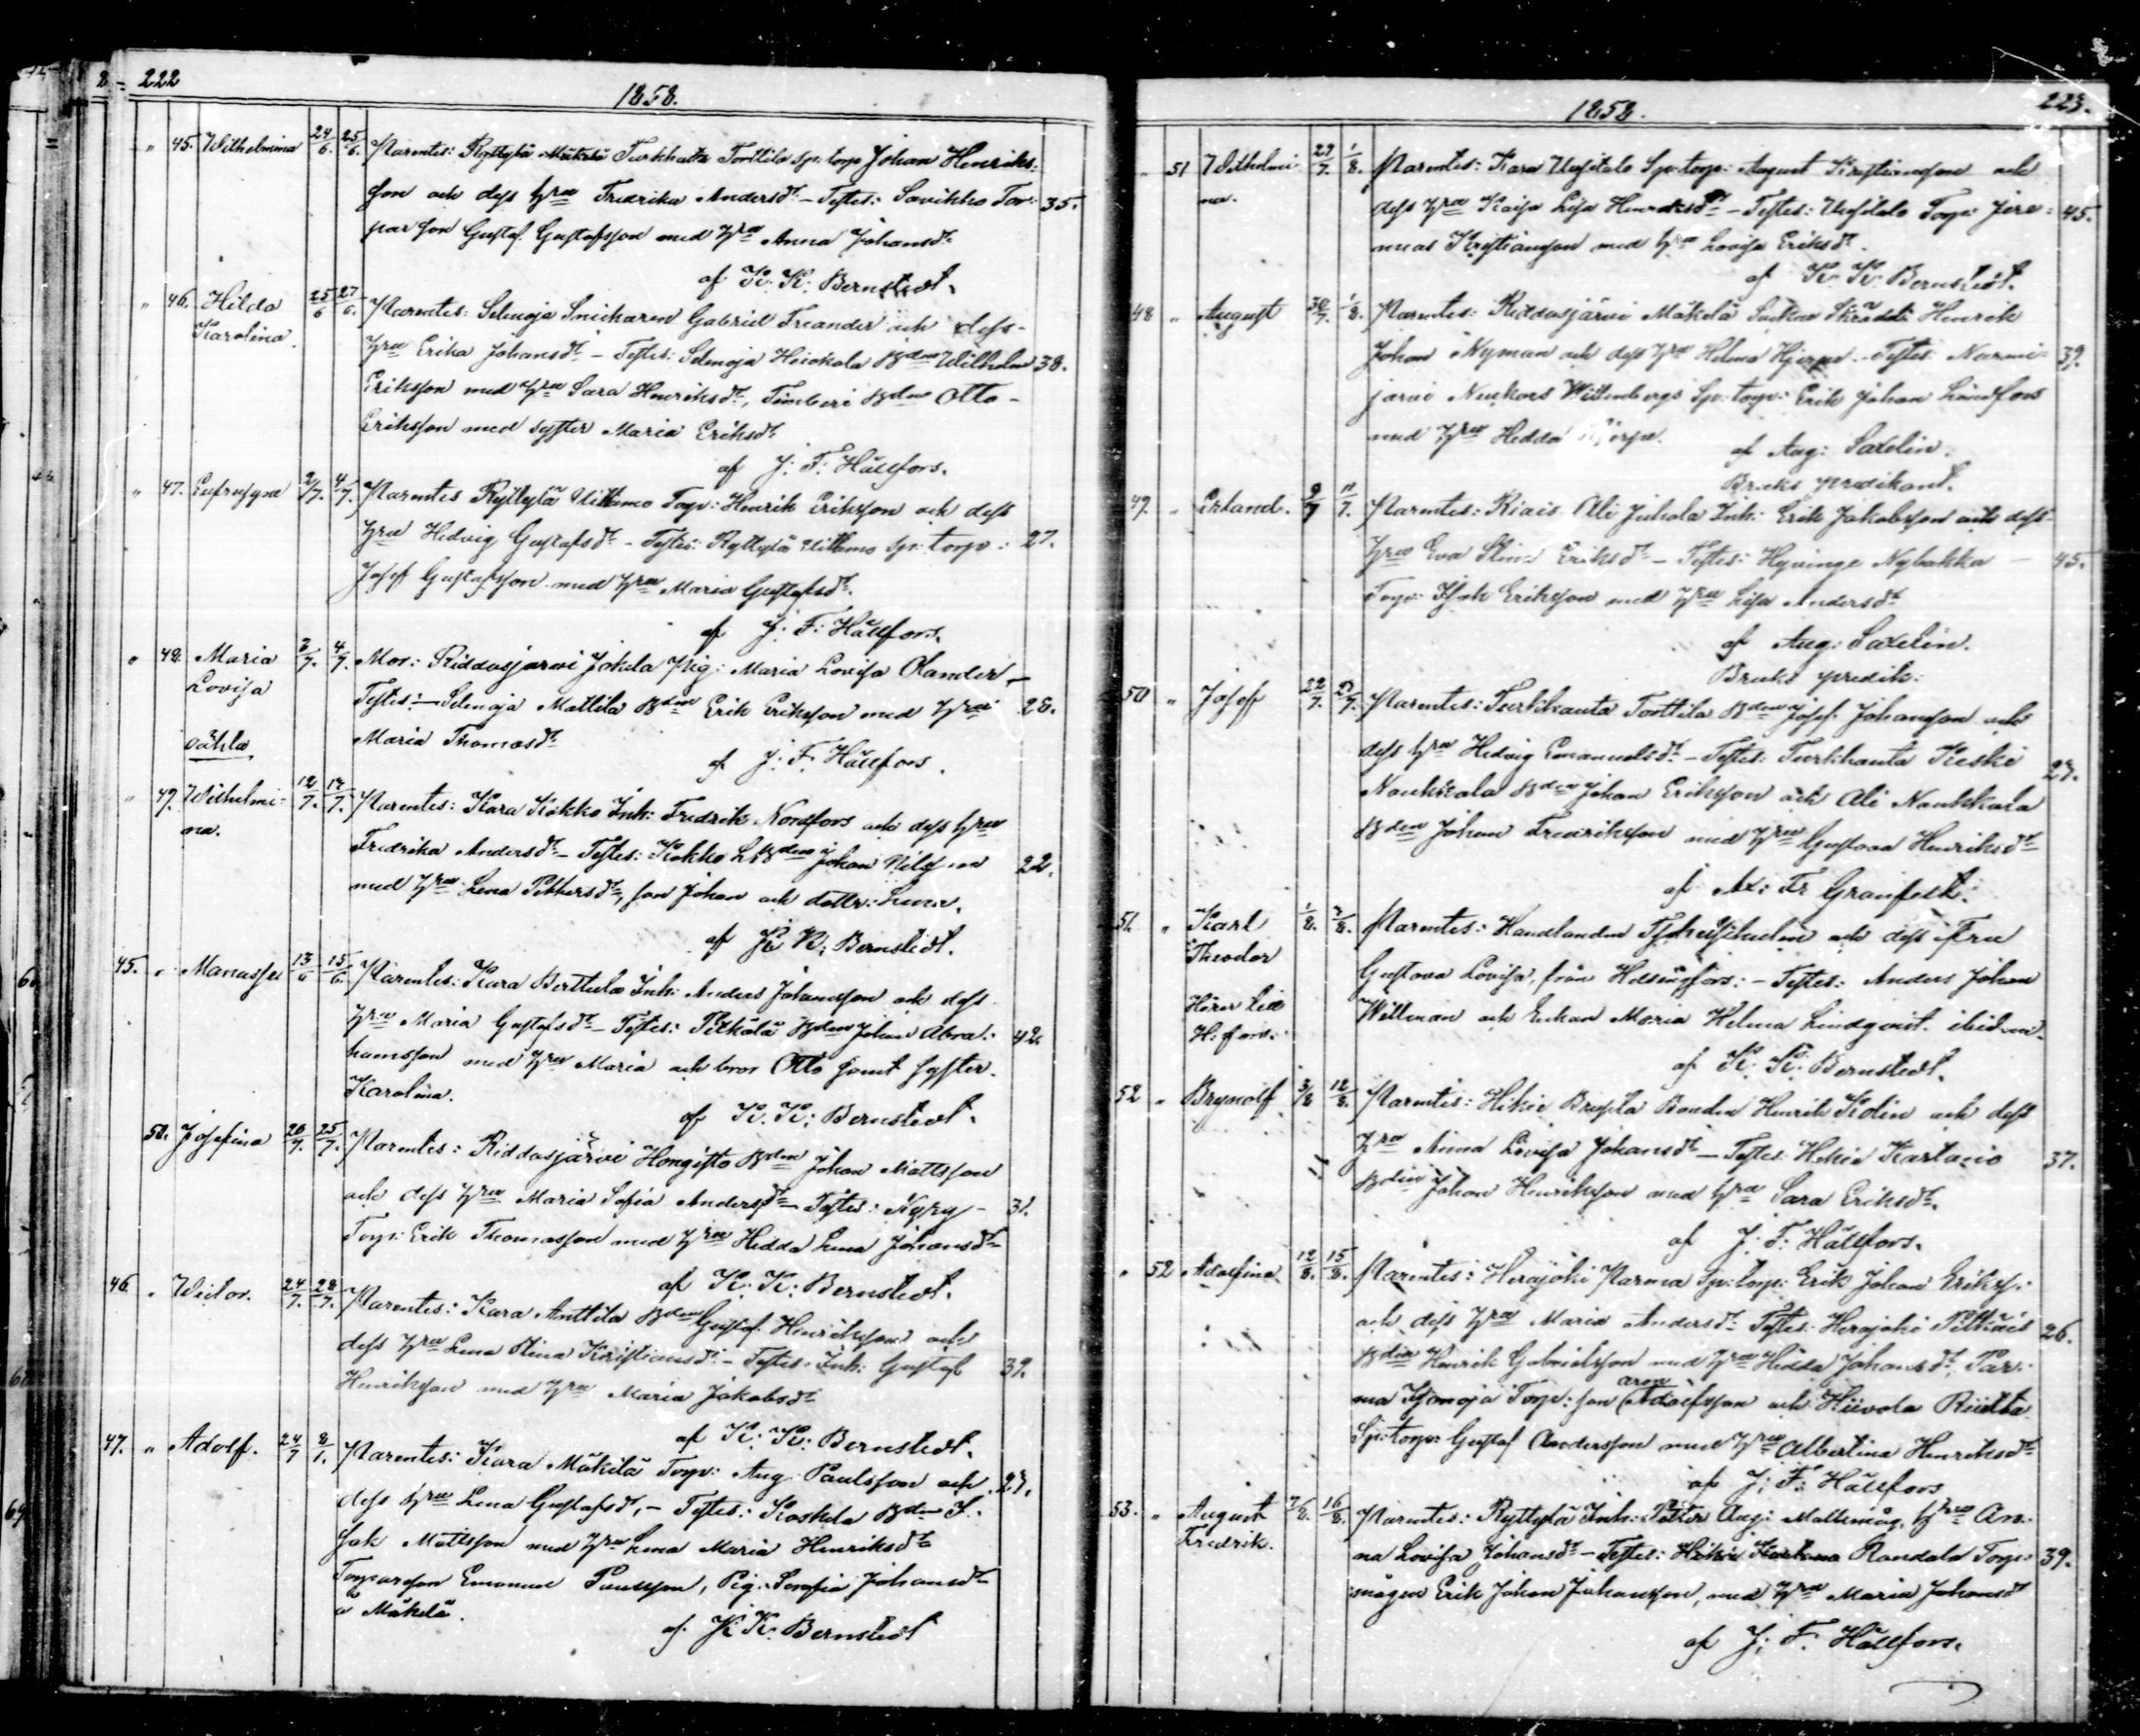 222
1858.
" 45. Wilhelmina 24/6. 25/6. Parentes: Ryttylä Mäkelä Turkhauta Torttila Sp: torp: Johan Henriks:
son och dess hru Fredrika Andersdr – Testes: Savikko Tor: 35.
par son Gustaf Gustafsson med hru Anna Johansdr
af K: K: Bernstedt.
" 46. Hilda 25/6 27/6. Parentes: Selenoja Snickaren Gabriel Treander och dess
Karolina. hru Erika Johansdr – Testes: Selenoja Heickola Bden Wilhelm 38.
Eriksson med hru Sara Henriksdr, Timberi Bden Otto
Eriksson med syster Maria Eriksdr
af J: F: Hällfors.
" 47. Eufrosyne 2/7. 4/7. Parentes Ryttylä Uittamo Torp: Henrik Eriksson och dess
hru Hedvig Gustafsdr – Testes: Ryttylä Uittamo Sp: torp: 27.
Josef Gustafsson med hru Maria Gustafsdr.
af J: F: Hällfors.
" 48. Maria 3/7. 4/7. Mor: Riddasjärvi Jokela Pig: Maria Lovisa Olander –
Lovisa Testes: – Selenoja Mattila Bden Erik Eriksson med hru 28.
oäkta Maria Thomasdr
af J: F. Hällfors.
" 49. Wilhelmi- 12/7. 17/7. Parentes: Kara Kokko Inh: Fredrik Nordfors och dess hru
na. Fredrika Andersdr – Testes: Kokko Bden Johan 22.
med hru Lena Pettersdr, son Johan och dottr: Lena.
af K K: Bernstedt.
45. " Manasse 13/6 15/6. Parentes: Kara Berttula Inh: Anders Johansson och dess
hru Maria Gustafsdr – Testes: Pitkälä Bden Johan Abra: 42.
hamsson med hru Maria och bror Otto samt syster
Karolina.
af K: K: Bernstedt.
50. Josefina 20/7. 25/7. Parentes: Riddasjärvi Hongisto Bden Johan Mattsson
och dess hru Maria Sofia Andersdr – Testes: Kyry – 31.
Torp: Erik Thomasson med hru Hedda Lena Johansdr
af K: K: Bernstedt.
46. " Victor. 24/7. 28/7. Parentes: Kara Anttila Bden Gustaf Henriksson och
dess hru Lena Stina Kristiansdr – Testes: Inh: Gustaf 39.
Henriksson med hru Maria Jakobsdr
af K: K: Bernstedt.
47. " Adolf. 24/7 8/1. Parentes: Kara Mäkilä Torp: Aug. Paulsson och 27.
dess hru Lena Gustafsdr, – Testes: Koskela Bden I:
sak Mattsson med hru Lena Maria Henriksdr
Torparson Emanuel Paulsson, Pig: Serafia Johansdr
å Mäkelä.
af K K: Bernstedt
1858.
223.
" 51 Wilhelmi- 29/7. 1/8. Parentes: Kara Uusitalo Sp: torp: August Kristiansson och
na. dess hru Kaisa Lisa Henriksdr – Testes: Uusitalo Torp: Jere: 45.
mias Kristiansson med hru Lovisa Eriksdr.
af K: K: Bernstedt.
48 " August 30/7. 1/8. Parentes: Riddasjärvi Mäkelä Socken Skräddr Henrik
Johan Nyman och dess hru Helena Hjorpe. – Testes: Nurmi= 39.
järvi Nuckars Wittenbergs Sp: torp: Erik Johan Lindfors
med hru Hedda
af Aug: Saxelin.
Bruks predikant.
49. " Erland. 9/7 11/7. Parentes: Riais Ali Juhola Inh: Erik Jakobsson och dess
hru Eva Stina Eriksdr – Testes: Hyvinge Nybakka – 45.
Torp: Isak Eriksson med hru Lisa Andersdr
af Aug: Saxelin.
Bruks predik:
50 " Josef 22/7. 23/7. Parentes: Turkhauta Torttila Bden Josef Johansson och
dess hru Hedvig Emanuelsdr – Testes: Turkhauta Keski 27.
Naukkala Bden Johan Eriksson och Ali Naukkala
Bden Johan Fredriksson med hru Gustava Henriksdr
af Ax: Fr Granfelt.
51. " Karl 1/8. 7/8. Parentes: Handlanden och dess Fru
Theodor Gustava Lovisa, från Helsingfors: – Testes: Anders Johan
Hörer till Willman och Enkan Maria Helena Lindqvist ibidem.
H: fors.
af K: K: Bernstedt.
52 " Brynolf 3/8 12/8. Parentes: Hikie Bonden Henrik Kolin och dess
hru Anna Lovisa Johansdr – Testes: Hikie Kartano 37.
Bden Johan Henriksson med hru Sara Eriksdr.
af J: F: Hällfors.
" 52 Adolfina 12/8. 15/8. Parentes: Herajoki Parma Sp: torp: Erik Johan Erikss:
och dess hru Maria Andersdr Testes: Herajoki Pitkäis 26.
Bden Henrik Gabrielsson med hru Hedda Johansdr, Par:
ma Isomoja Torp: son Aron Adolfsson och Hiivola
Sp: torp: Gustaf Andersson med hru Albertina Henriksdr
af J: F: Hällfors
53. " August 7/8. 16/8. Parentes: Ryttylä Inh: Petter Aug: Malkimåg, hru An:
Fredrik. na Lovisa Johansdr – Testes: Hikie Randala Torp: 39.
mågen Erik Johan Juhansson, med hru Maria Johansdr
af J: F. Hällfors.